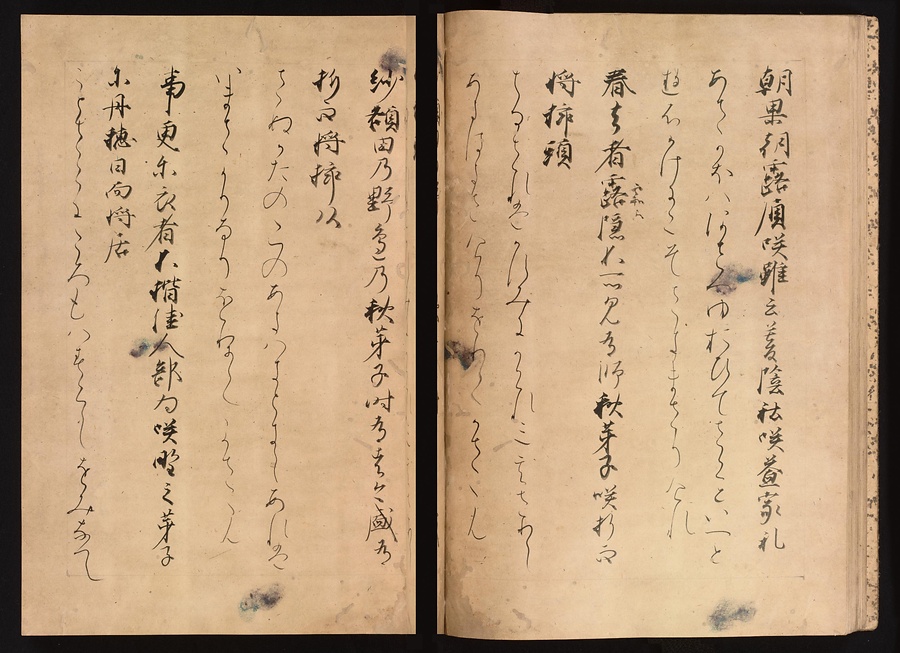 朝杲朝露負咲雖云暮陰社咲益家礼
あさかほハあさつゆおひてさくといへと
遊ふかけにこそさきまさりけれ
春去者露隠不所見有師秋芽子咲折而
将挿頭
はるされはかすみにかくれみえさりし
あきはきさけりをりてかさゝむ
紗額田乃野邊乃秋芽子時有者今盛有
折而将挿
さぬかたのゝへのあきはきときしあれは
いまさかりなりをりてかさゝむ
事更尓衣者不揩佳人部為咲野之芽子
尓丹穂日而将居
ことさらにころもハすらしをみなへし